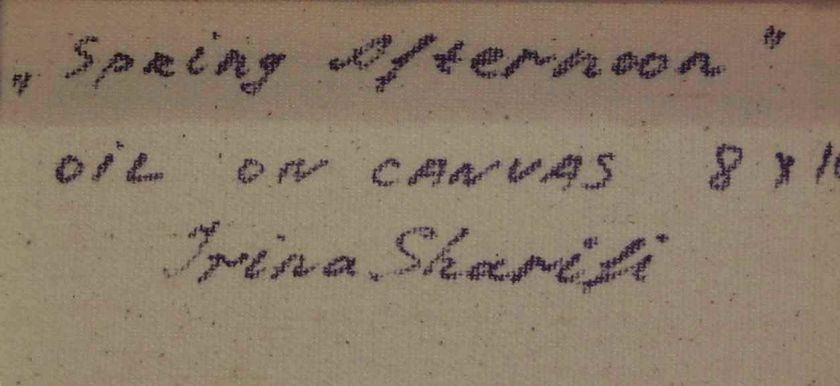 „Spring Afternoon"
OIL ON CANVAS 8 x 10
Irina Sharifi